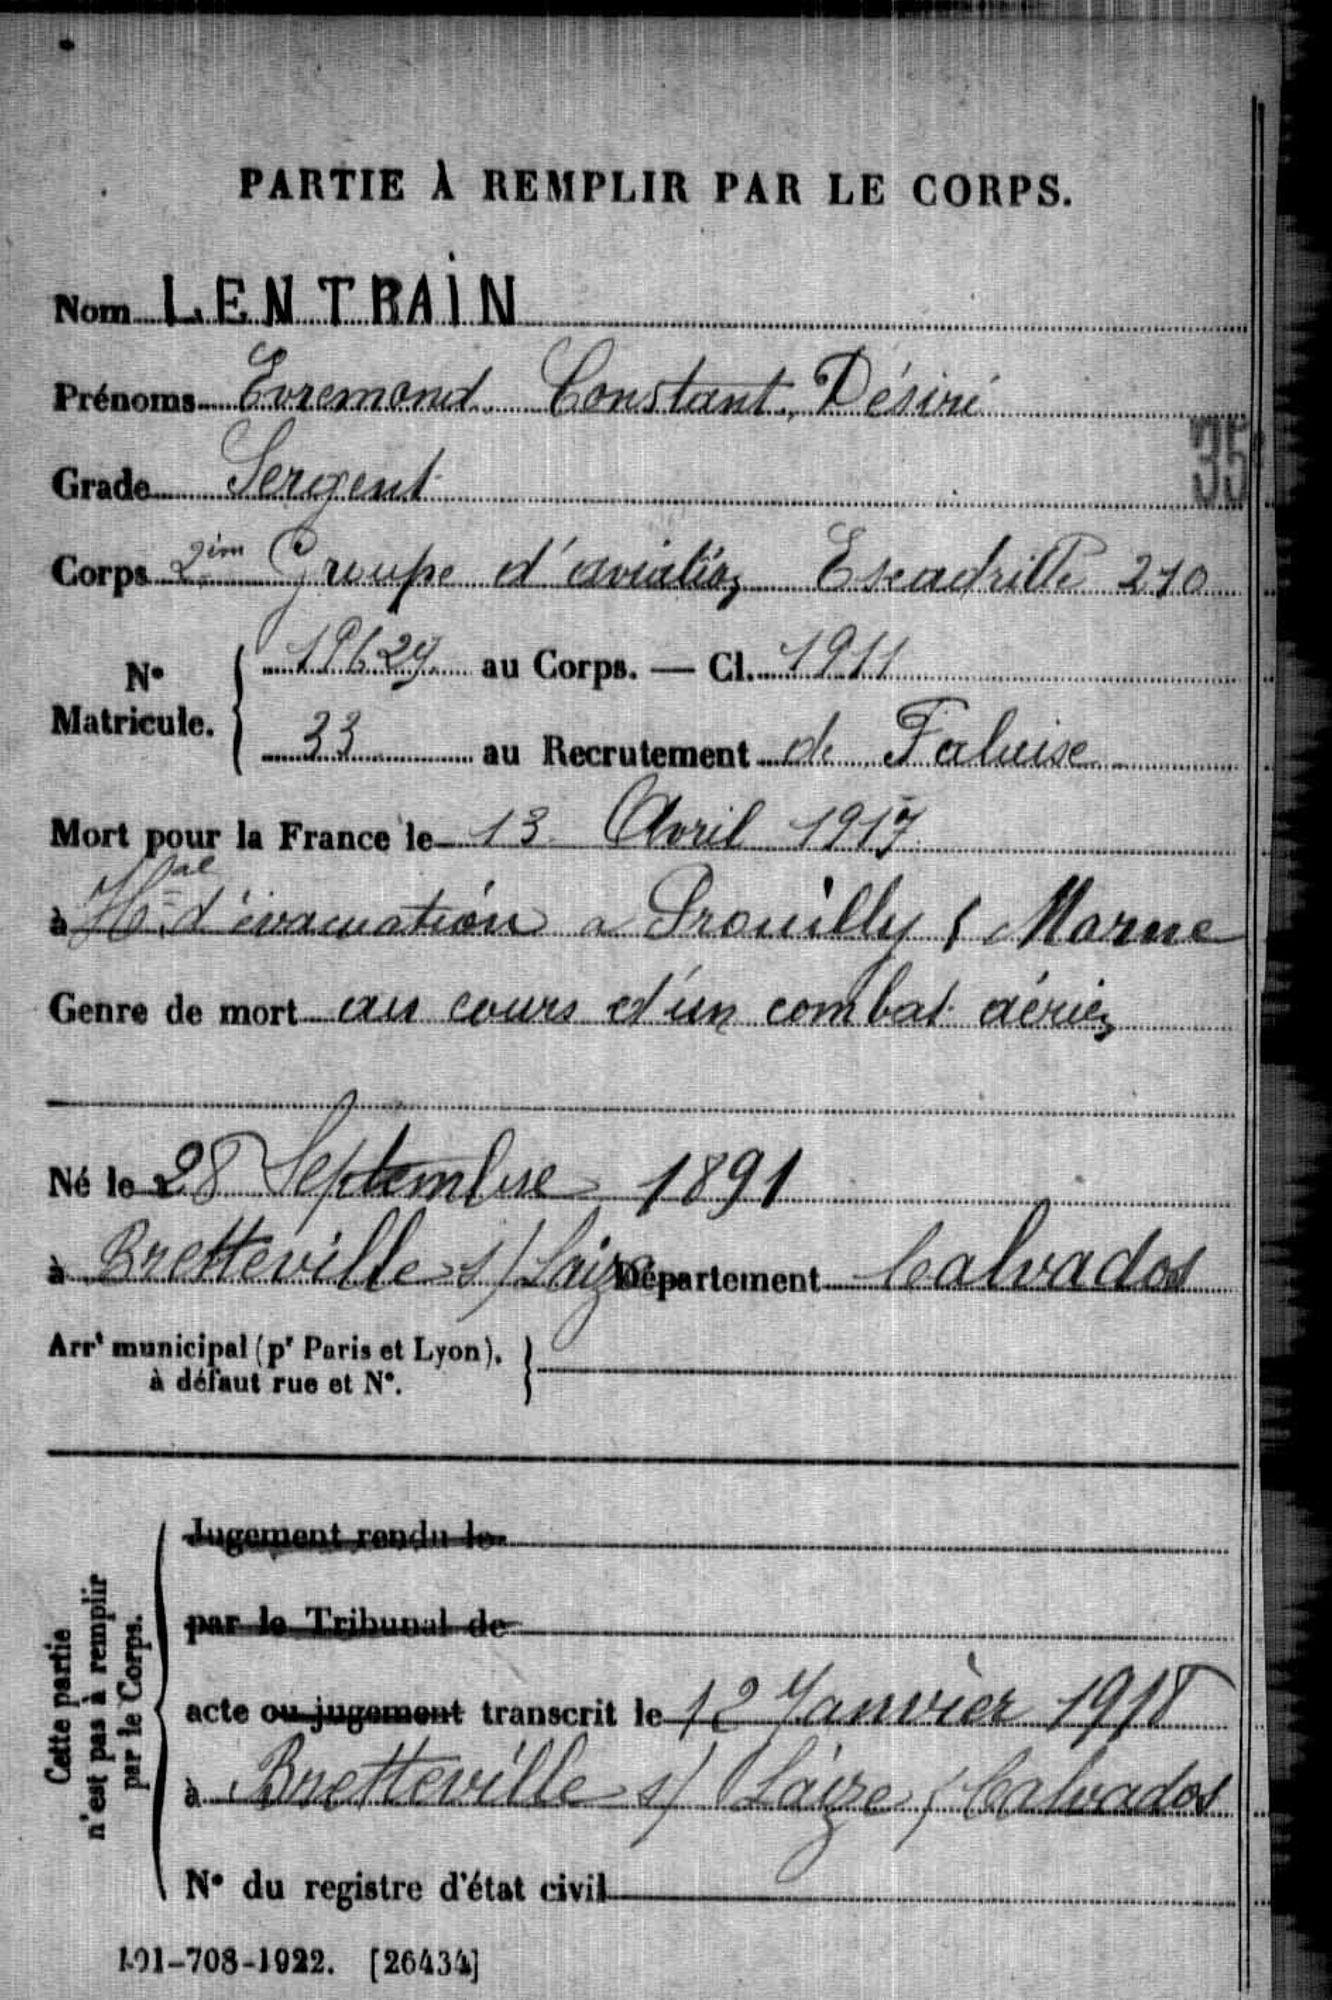 PARTIE À REMPLIR PAR LE CORPS.
Nom LENTRAIN
Prénoms Evremond Constant Désiré
35
Grade Sergent
Corps 2èm Groupe d'aviation Escadrille 210
N° Matricule. 19629 au Corps. — Cl. 1911
33 au Recrutement de Falaise
Mort pour la France le 13 Avril 1917
à Hal d'évacuation a Prouilly ( Marne
Genre de mort au cours d'un combat aérien
Né le 28 Septembre 1891
à Bretteville s/ Laize Département Calvados
Arrt municipal (pr Paris et Lyon), à défaut rue et N°.
Cette partie n'est pas à remplir par le Corps.
Jugement rendu le
par le Tribunal de
acte ou jugement transcrit le 12 Janvier 1918
à Bretteville s/ Laize ( Calvados
N° du registre d'état civil
101-708-1922. [26434]